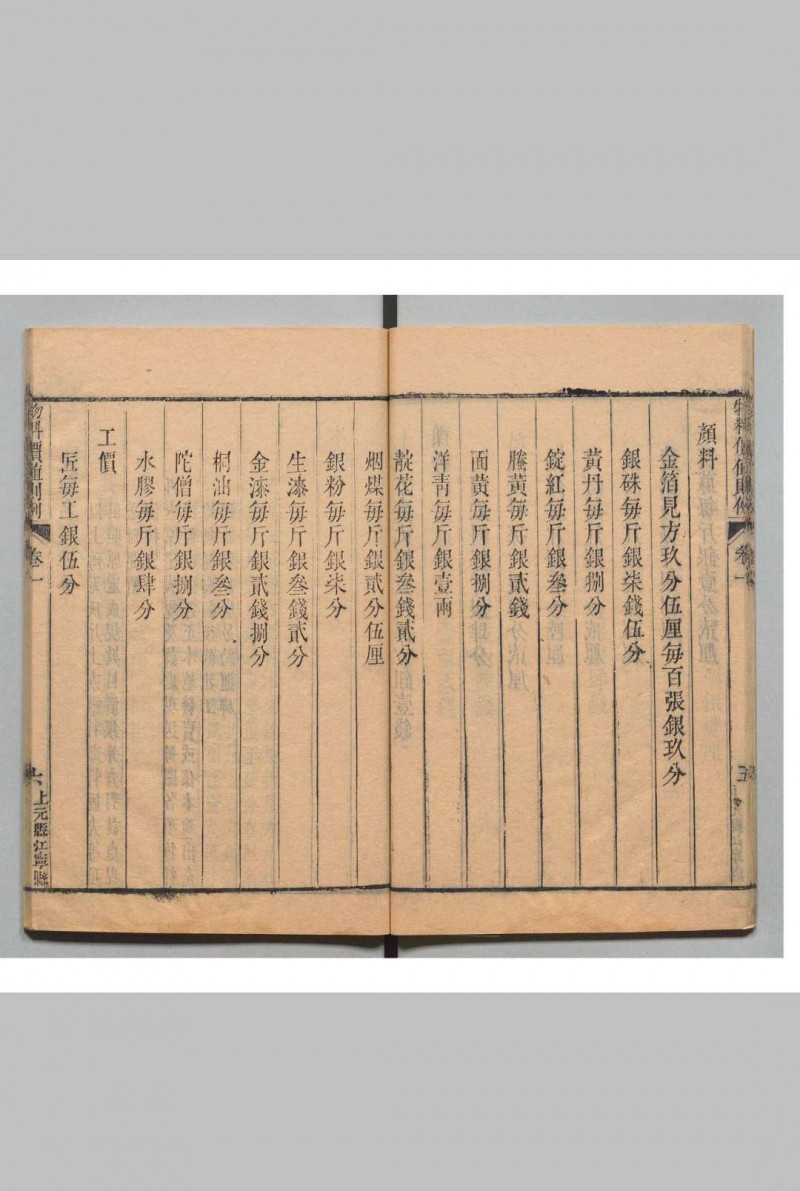 物料價值則例 卷一 五
顏料
金箔見方玖分伍厘每百張銀玖分
銀硃每斤銀柒錢伍分
黃丹每斤銀捌分
錠紅每斤銀叁分
籐黃每斤銀貳錢
面黃每斤銀捌分
洋青每斤銀壹兩
靛花每斤銀叁錢貳分
烟煤每斤銀貳分伍厘
銀粉每斤銀柒分
生漆每斤銀叁錢貳分
金漆每斤銀貳錢捌分
桐油每斤銀叁分
陀僧每斤銀捌分
水膠每斤銀肆分
工價
匠每工銀伍分
物料價值則例 卷一 六 上元縣江寧縣